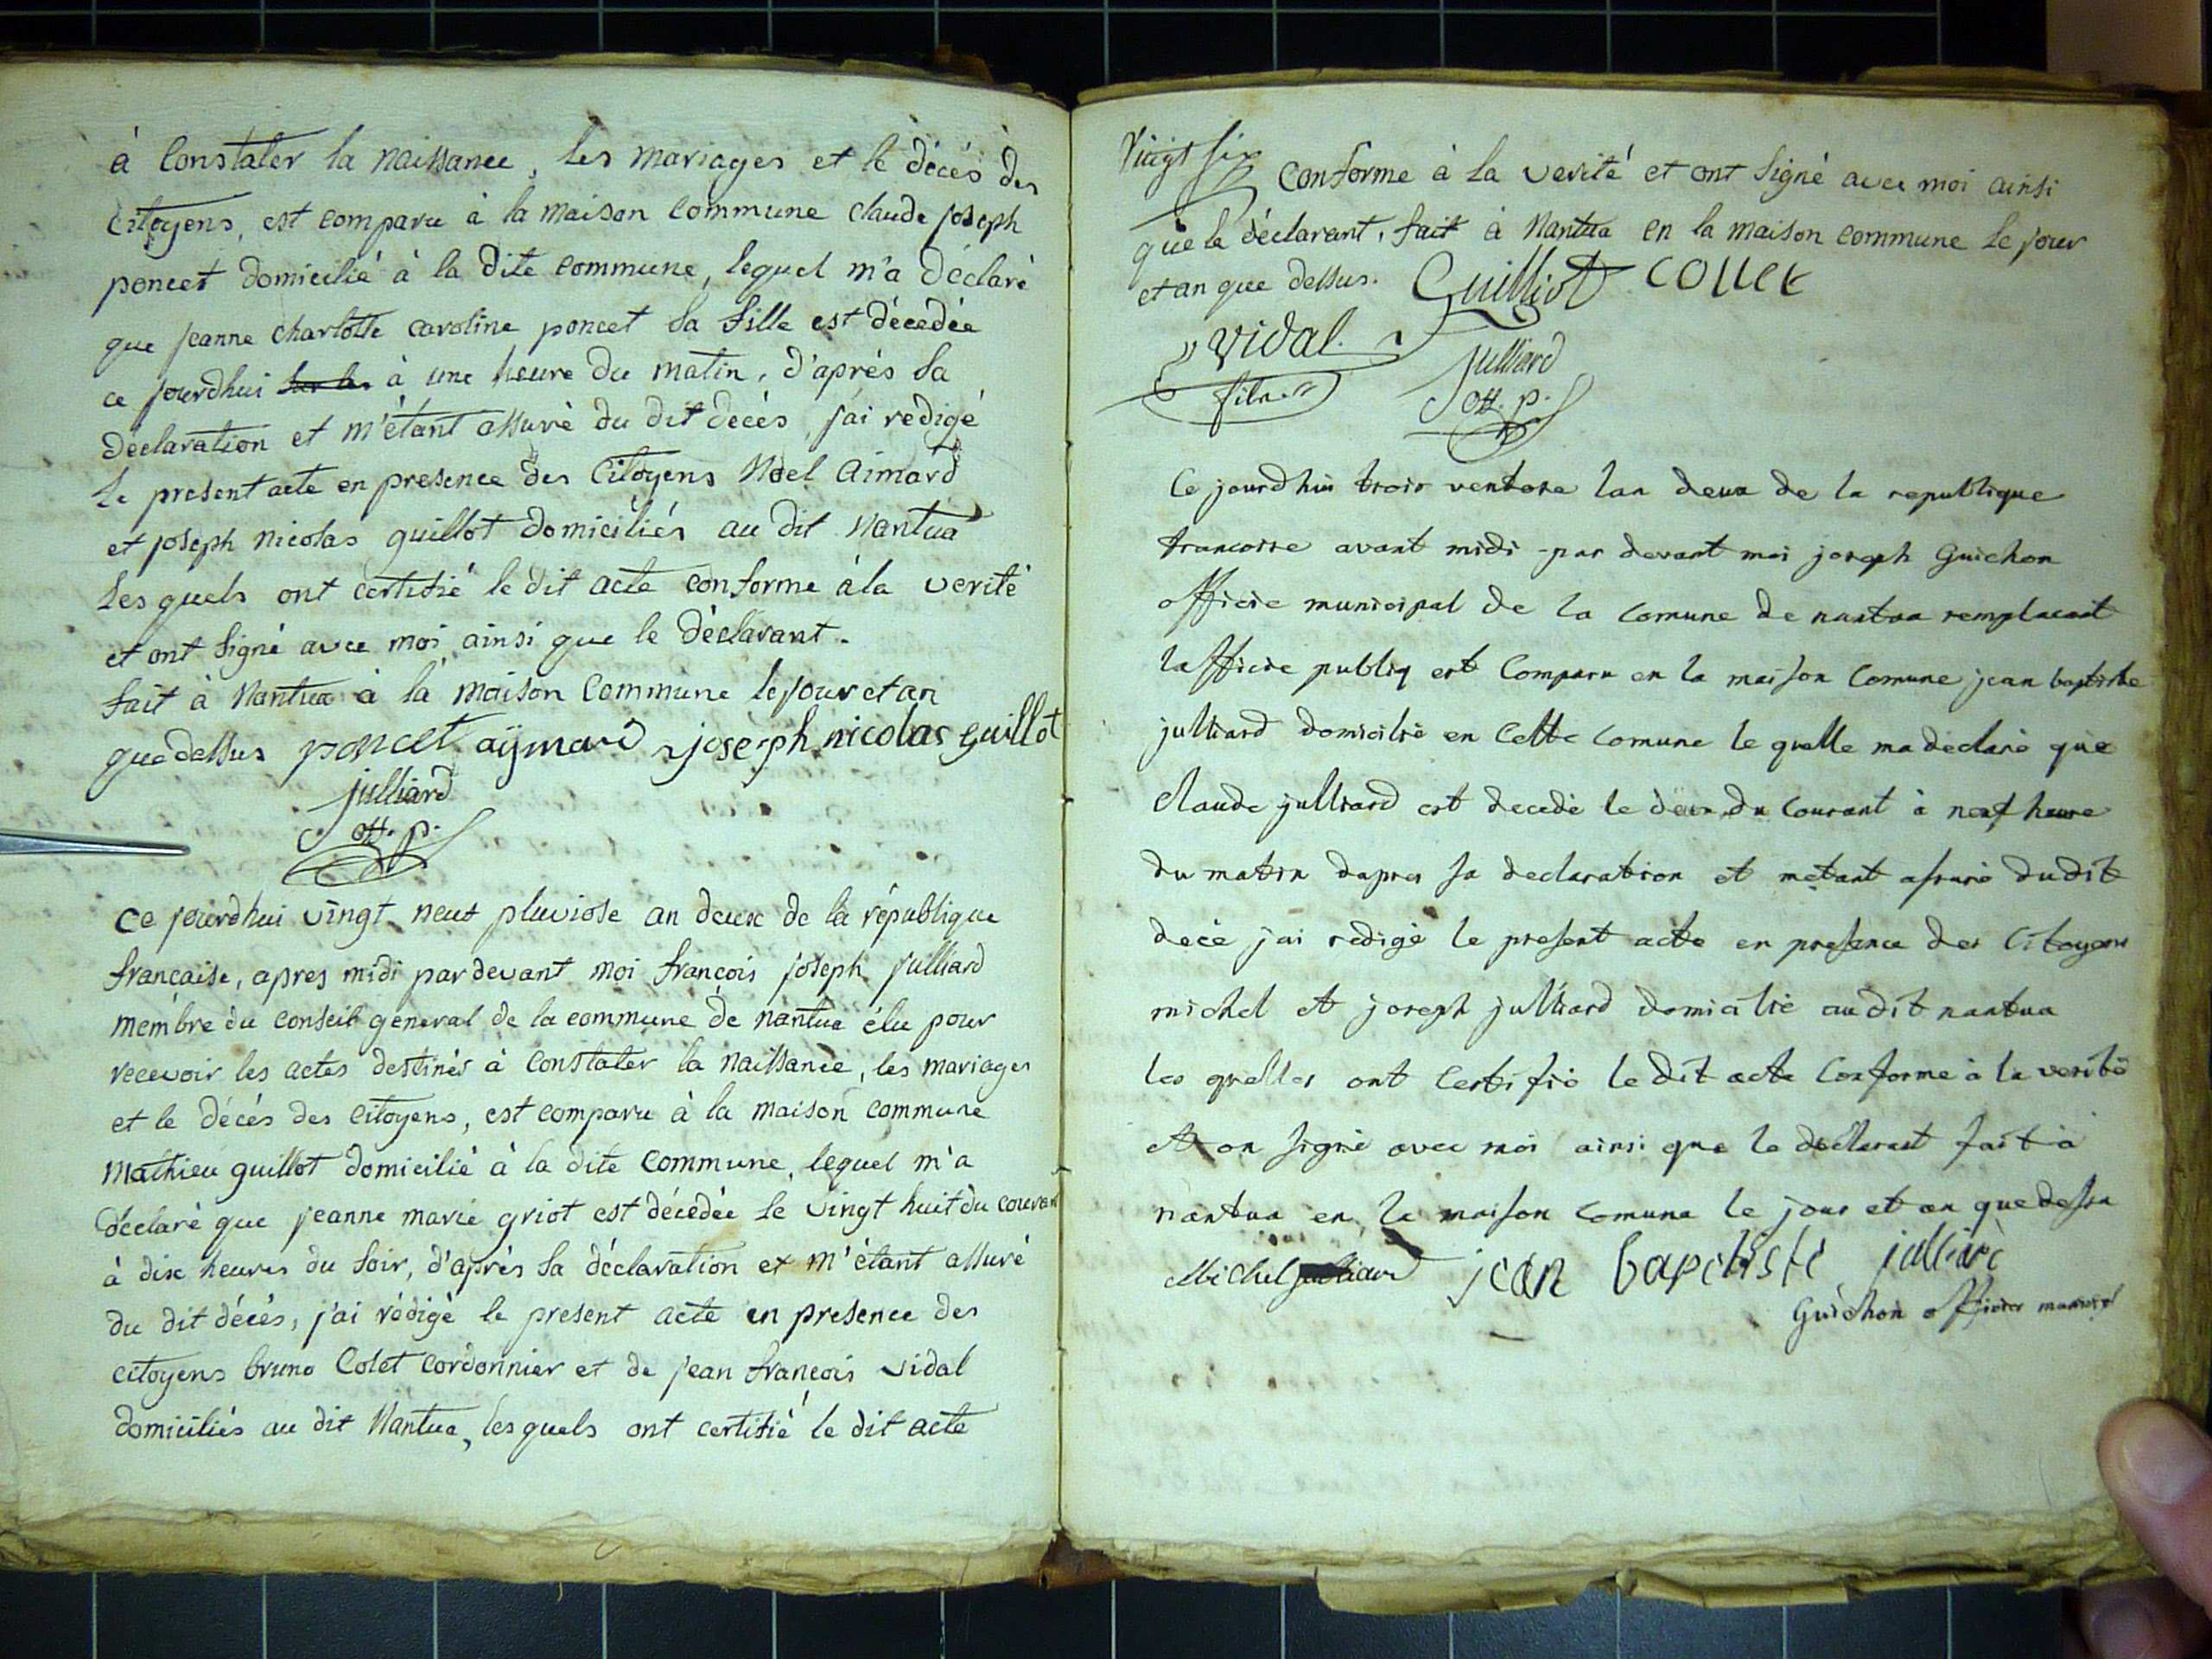 à Constater la naissance, les mariages et le décés des
Citoyens, est comparu à la maison Commune claude joseph
poncet domicilié à la dite commune, lequel m'a déclaré
que jeanne charlotte caroline poncet sa fille est décédée
ce jourdhui à une heure du matin, d'aprés sa
déclaration et m'étant assuré du dit decés, j'ai rédigé
le present acte en presence des Citoyens Noel Aimard
et joseph nicolas guillot domiciliés au dit Nantua
Les quels ont certifié le dit acte conforme à la verité
et ont signé avec moi ainsi que le déclarant.
fait à Nantua à la maison Commune le jour et an
que dessus poncet aÿmard joseph nicolas guillot
julliard
off. p.
ce jourdhui vingt neuf pluviose an deux de la république
française, apres midi pardevant moi françois joseph julliard
membre du conseil general de la commune de nantua élu pour
recevoir les actes destinés à constater la naissance, les mariages
et le décés des citoyens, est comparu à la maison commune
Mathieu guillot domicilié à la dite commune, lequel m'a
déclaré que jeanne marie griot est décédée le vingt huit du couran
à dix heures du soir, d'aprés sa déclaration et m'étant assuré
du dit décés, j'ai rédigé le present acte en presence des
citoyens bruno Colet cordonnier et de jean françois vidal
domiciliés au dit Nantua, les quels ont certifié le dit acte
Vingt six
conforme à la verité et ont signé avec moi ainsi
que le déclarant, fait à Nantua en la maison commune le jour
et an que dessus. Guilliot COLLET
vidal
fils
julliard
off. p.
Ce jourdhui trois ventose lan deux de la republique
francoise avant midi par devant moi joseph Guichon
officie municipal de la Comune de nantua remplacant
lofficie publiq est Comparu en la maison Comune jean baptiste
julliard domicilié en Cette Comune le quelle ma déclaré que
Claude julliard est decedé le deux du Courant à neuf heure
du matin dapres sa declaration et metant assuré dudit
decé jai redigé le present acte en presence des Citoyens
michel et joseph julliard domicilié audit nantua
les quelles ont Certifié le dit acte Conforme à la verité
et on signé avec moi ainsi que le declarant fait à
nantua en la maison Comune le jour et an que dessu
Michel julliard jean baptiste julliard
Guichon officier